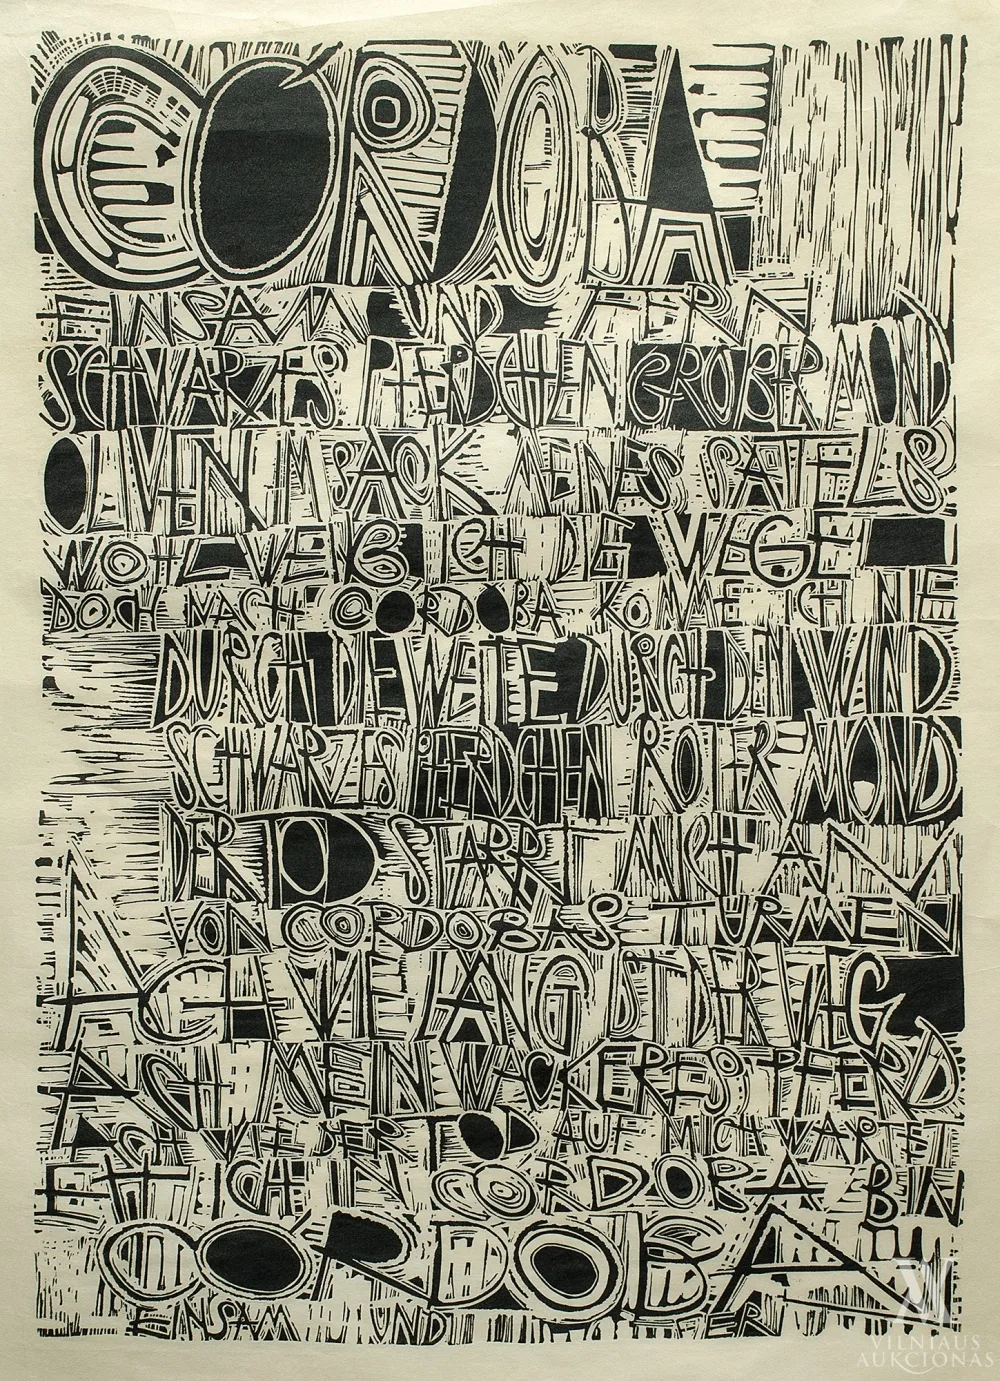 CÓRDOBA
EINSAM UND FERN
SCHWARZES PFERDCHEN GROßER MOND
OLIVEN IM SACK MEINES SATTELS
WOHL WEIß ICH DIE WEGE
DOCH NACH CORDOBA KOMME ICH NIE
DURCH DIE WEITE DURCH DEN WIND
SCHWARZES PFERDCHEN ROTER MOND
DER TOD STARRT MICH AN
VON CORDOBAS TÜRMEN
ACH WIE LANG IST DER WEG
ACH MEIN WACKERES PFERD
ACH WIE DER TOD AUF MICH WARTET
EH ICH IN CORDOBA BIN
CÓRDOBA
EINSAM UND FERN
VILNIAUS
AUKCIONAS